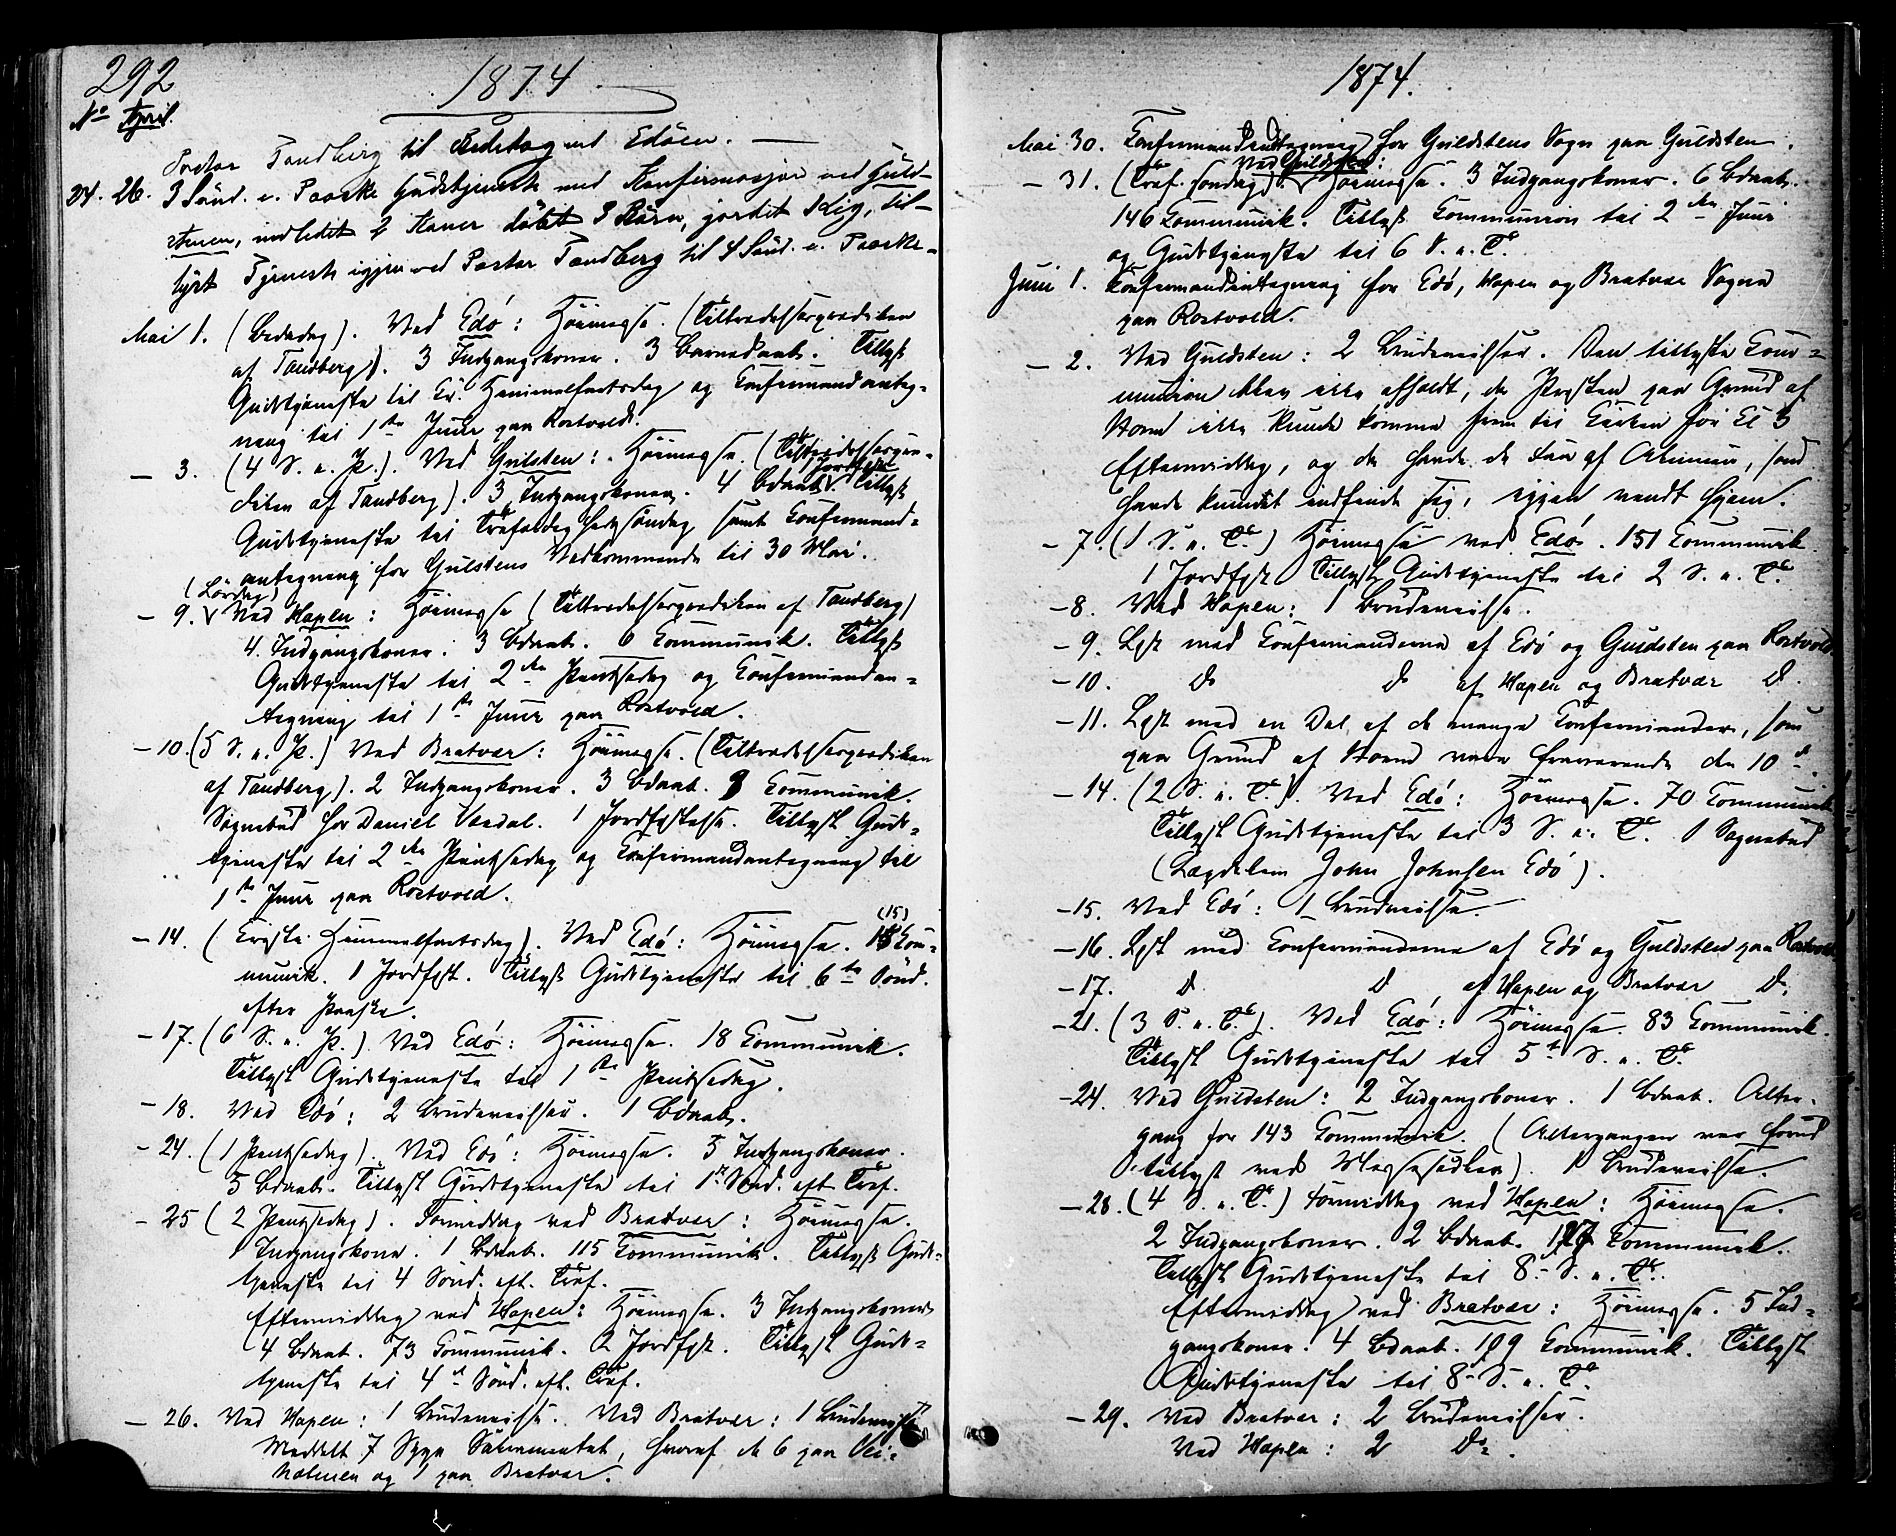 292
1874
No April.
Pastor Tandberg til Redstog ved Edöen. —
24. 26. 3 Sönd. e. Paaske Gudstjeneste med Konfirmasjon ved Guld-
stenen, indledet 2 Koner döbt 3 Börn, jordet 1 Lig, til-
lyst Tjeneste igjen ved Pastor Tandberg til 4 Sönd. e. Paaske.
Mai 1. (Bededag). Ved Edö: Höimesse. (Tiltrædelsesprædiken
af Tandberg). 3 Indgangskoner. 3 Barnedaab. Tillyst
Gudstjeneste til Cr. Himmelfartsdag og Confirmandanteg-
ning til 1ste Juni paa Rostvold.
— 3. (4 S. e. P.). Ved Gulsten: Höimesse. (Tiltrædelsespræ-
diken af Tandberg). 3 Indgangskoner. 4 Bdaab. 1 Jordfst. Tillyst
Gudstjeneste til Trefoldighedssöndag samt Confirmand-
antegning for Gulstens Vedkommende til 30 Mai.
(Lördag)
— 9. Ved Hopen: Höimesse (Tiltrædelsesprædiken af Tandberg)
4. Indgangskoner. 3 Bdaab. 6 Communik. Tillyst
Gudstjeneste til 2den Pintsedag og Confirmandan-
tegning til 1ste Juni paa Rostvold.
— 10. (5 S. e. P.) Ved Bratvær: Höimesse. (Tiltrædelsesprædiken
af Tandberg). 2 Indgangskoner. 3 Bdaab. 9 Communik.
Sognebud hos Daniel Veidal. 1 Jordfæstelse. Tillyst Guds-
tjeneste til 2den Pintsedag og Confirmandantegning til
1ste Juni paa Rostvold.
— 14. (Cristi Himmelfartsdag). Ved Edö: Höimesse. 15 (15) Com-
munik. 1 Jordfst. Tillyst Gudstjeneste til 6te Sönd.
efter Paaske.
— 17. (6 S. e. P.). Ved Edö: Höimesse. 18 Communik.
Tillyst Gudstjeneste til 1ste Pintsedag.
— 18. Ved Edö: 2 Brudevielser. 1 Bdaab.
— 24. (1 Pintsedag). Ved Edö: Höimesse. 5 Indgangskoner.
5 Bdaab. Tillyst Gudstjeneste til 1ste Sönd. eft. Tref.
— 25 (2 Pintsedag). Formiddag ved Bratvær: Höimesse.
1 Indgangskone. 1 Bdaab. 115 Communik. Tillyst Guds-
tjeneste til 4 Sönd. eft. Tref.
Eftermiddag ved Hopen: Höimesse. 3 Indgangskoner
4 Bdaab. 73 Communik. 2 Jordfst. Tillyst Guds-
tjeneste til 4de Sönd. eft. Tref.
— 26. Ved Hopen: 1 Brudevielse. Ved Bratvær: 1 Brudevielse
Meddelt 7 Syge Sakramentet, hvoraf de 6 paa Vei-
holmen og 1 paa Bratvær.
1874.
Mai 30. Confirmandantegning for Guldstens Sogn paa Guldsten.
— 31. (Tref. söndag). Ved Guldsten: Höimesse. 3 Indgangskoner. 6 Bdaab.
146 Communik. Tillyst Communion til 2den Juni
og Gudstjeneste til 6 S. e. Tr.
Juni 1. Confirmandantegning for Edö, Hopen og Bratvær Sogne
paa Rostvold.
— 2. Ved Guldsten: 2 Brudevielser. Den tillyste Com-
munion blev ikke afholdt, da Presten paa Grund af
Storm ikke kunde komme frem til Kirken för Kl 3
Eftermiddag, og da havde de Faa af Almuen, som
havde kundet indfinde sig, igjen vendt hjem.
— 7. (1 S. e. Tr.) Höimesse ved Edö. 151 Communik.
1 Jordfst. Tillyst Gudstjeneste til 2 S. e. Tr.
— 8. Ved Hopen: 1 Brudevielse.
— 9. Læst med Confirmanderne af Edö og Guldsten paa Rostvold
— 10. Do Do af Hopen og Bratvær Do.
— 11. Læst med en Del af de mange Confirmander, som
paa Grund af Storm vare fraværende den 10de.
— 14. (2 S. e. Tr.). Ved Edö: Höimesse. 70 Communik
Tillyst Gudstjeneste til 3 S. e. Tr. 1 Sognebud
(Lægdslem John Johnsen Edö).
— 15. Ved Edö: 1 Brudevielse.
— 16. Læst med Confirmanderne af Edö og Guldsten paa Rostvold
— 17. Do Do af Hopen og Bratvær Do.
— 21. (3 S. e. Tr.). Ved Edö: Höimesse. 83 Communik.
Tillyst Gudstjeneste til 5te S. e. Tr.
— 24. Ved Guldsten: 2 Indgangskoner. 1 Bdaab. Alter-
gang for 143 Communik. (Altergangen var forud
tillyst ved Messesedler). 1 Brudevielse.
— 28. (4 S. e. Tr.) Formiddag ved Hopen: Höimesse.
2 Indgangskoner. 2 Bdaab. 127 Communik.
Tillyst Gudstjeneste til 8de S. e. Tr.
Eftermiddag ved Bratvær: Höimesse. 5 Ind-
gangskoner. 4 Bdaab. 109 Communik. Tillyst
Gudstjeneste til 8de S. e. Tr.
— 29. Ved Bratvær: 2 Brudevielser.
Ved Hopen: 2 Do.